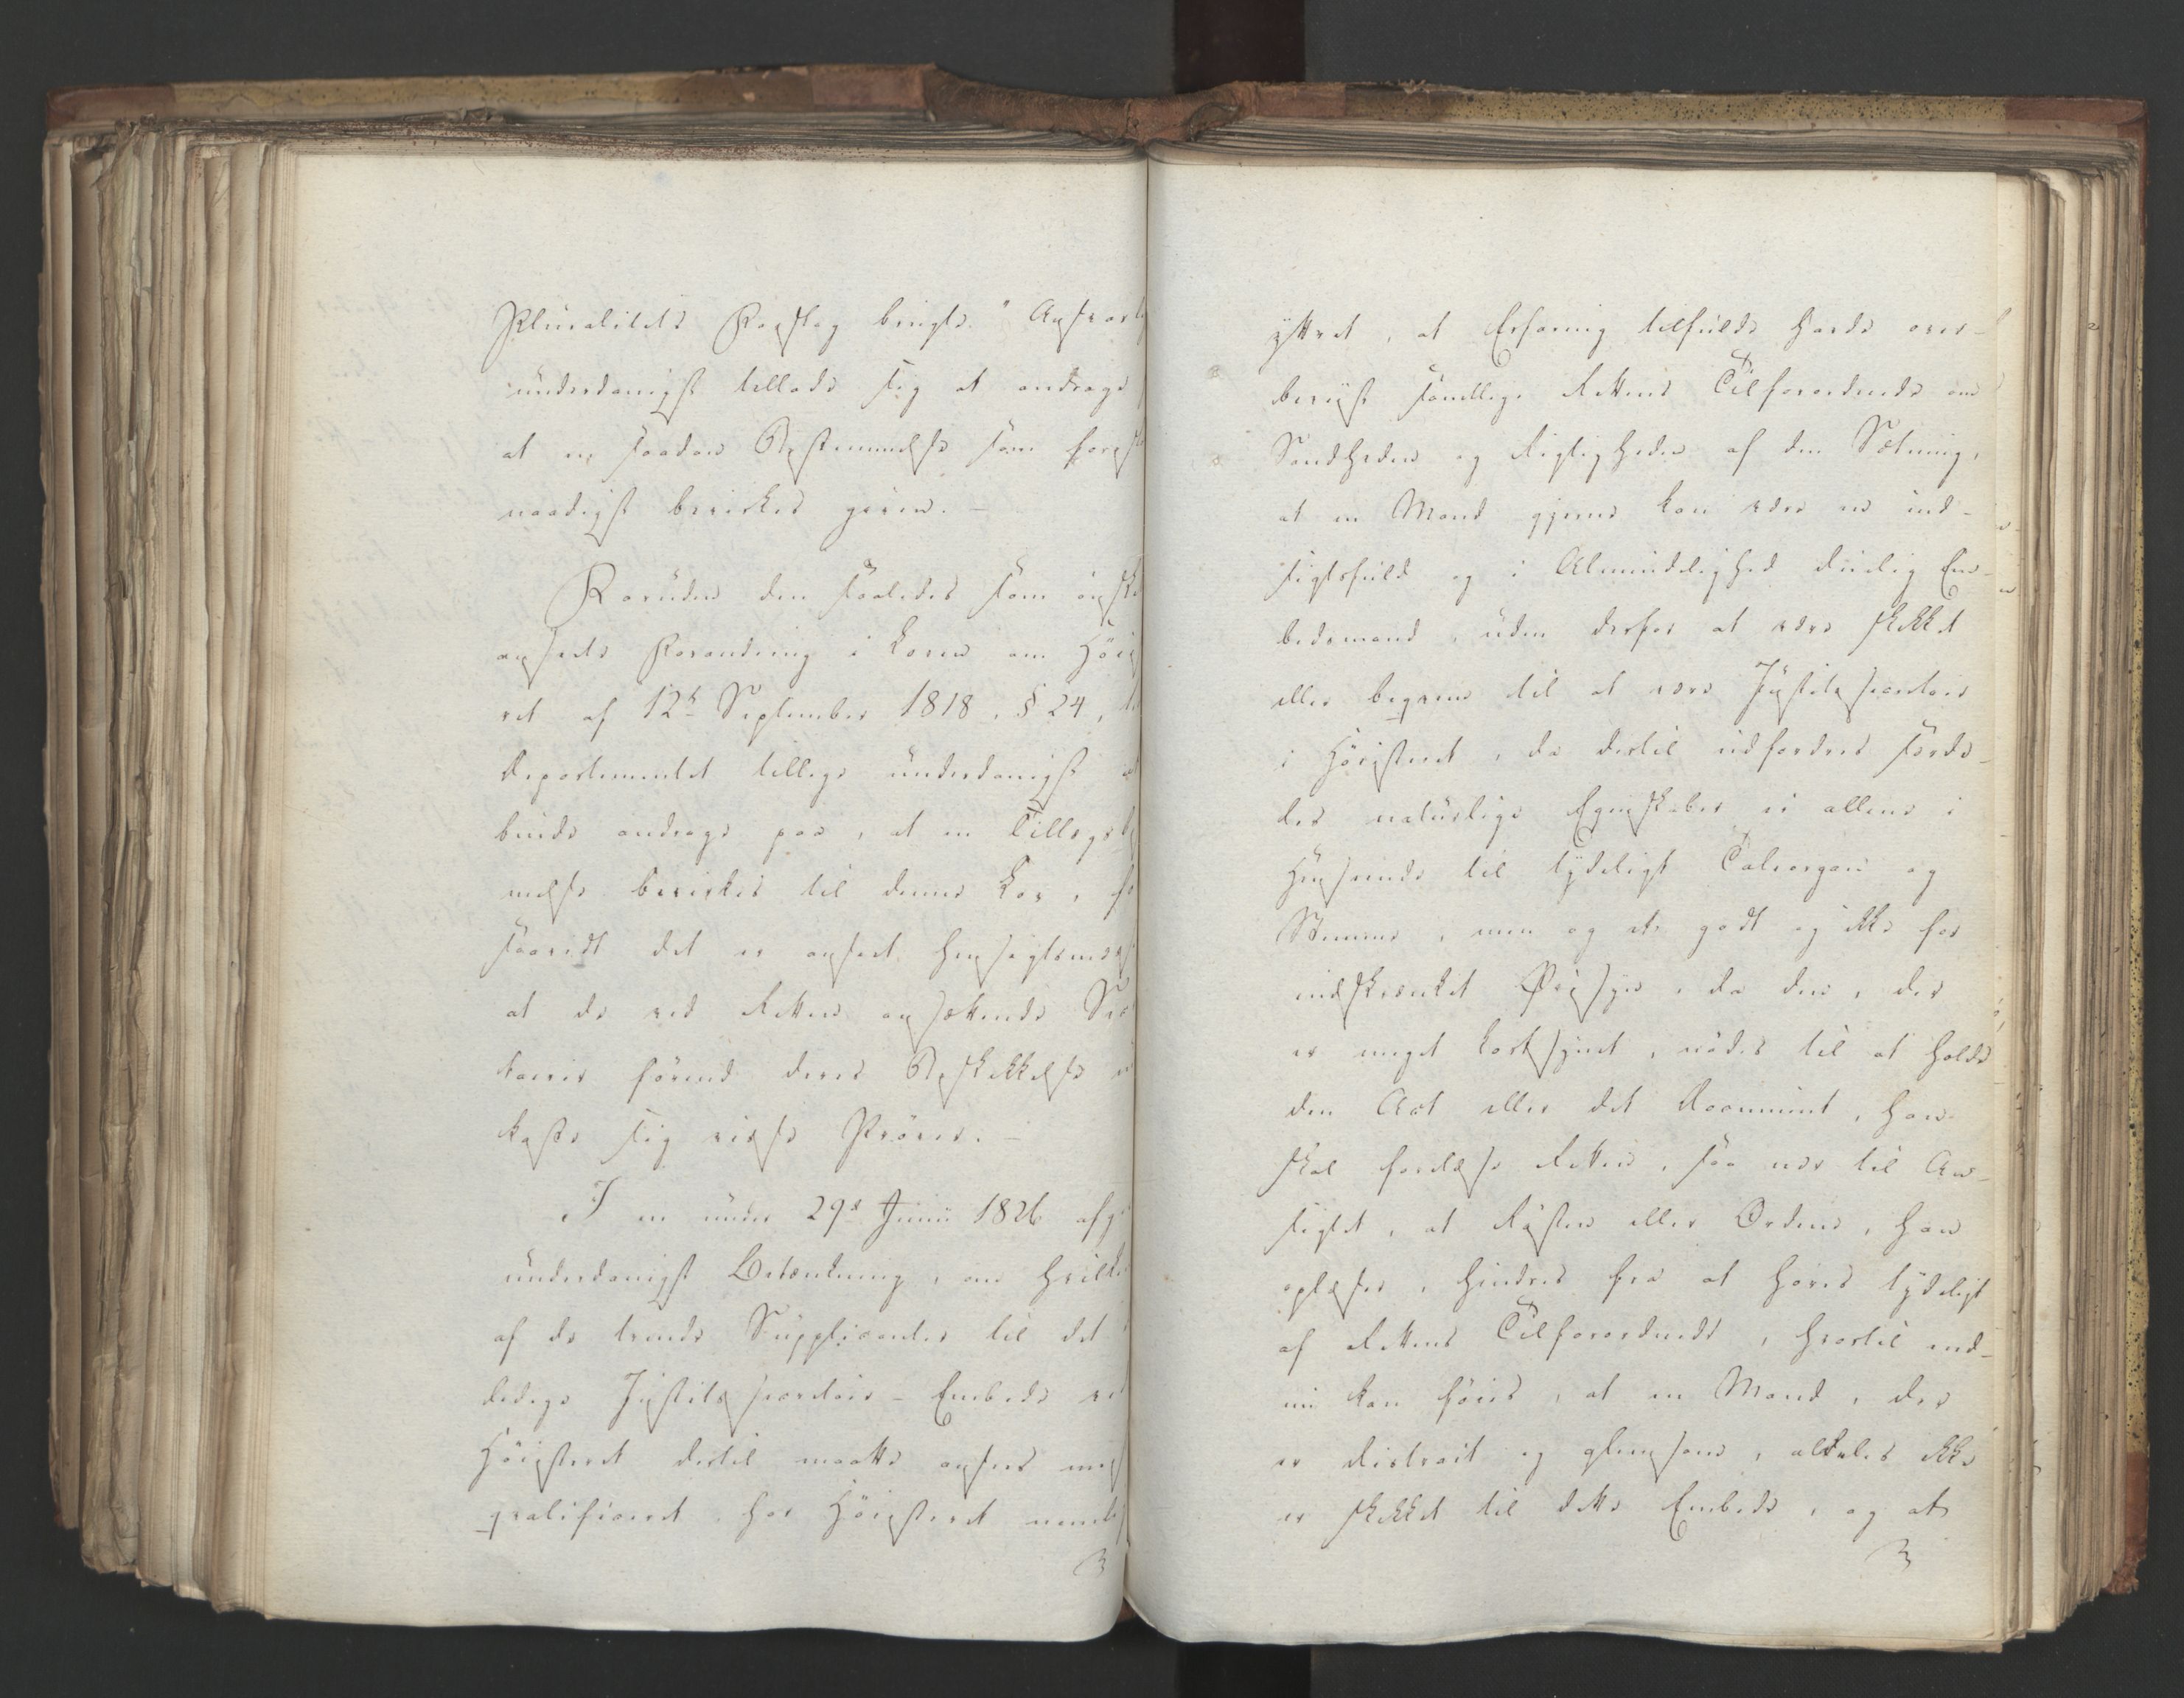 Pluralitets Forslag bringes." Ansvar
underdanigst tillade sig at andrage
at en saadan Bestemmelse som fores
naadigst bevirkes given. –
Foruden den saaledes som ønske
anseete Forandring i Loven om Høie
ret af 12te September 1818, § 24,
Departementet tillige underdanigst
burde andrage paa, at en Tillægsbe
melse bevirkes til denne Lov, fo
saavidt det er anseet hensigtsmæs
at de ved Retten ansættende Se
tairer førend deres Beskikkelse
kaste sig visse Prøver. –
I en under 29de Junii 1826 afg
underdanigst Betænkning, om hvilke
af de trende Supplicanter til det
ledige Justitssecretair-Embede ve
Høiesteret dertil maatte ansees mes
qvalificeret, har Høiesteret nemli
yttret, at Erfaring tilfulde havde over-
beviist samtlige Rettens Tilforordnede om
Sandheden og Rigtigheden af den Sætning,
at en Mand gjerne kan være en ind-
sigtsfuld og i Almindelighed duelig Em-
bedsmand, uden derfor at være skikket
eller beqvem til at være Justitssecretair
i Høiesteret, da dertil udfordres særde-
les naturlige Egenskaber ei allene i
Henseende til tydeligt Taleorgan og
Stemme, men og et godt og ikke for
indskrænket Øiesyn, da den, der
er meget kortsynet, nødes til at holde
den Act eller det Document, han
skal forelæse Retten, saa nær til An-
sigtet, at Røsten eller Ordene, han
oplæser, hindres fra at høres tydeligt
af Rettens Tilforordnede, hvortil end-
nu kan føies, at en Mand, der
er distrait og glemsom, aldeles ikke
er skikket til dette Embede, og at